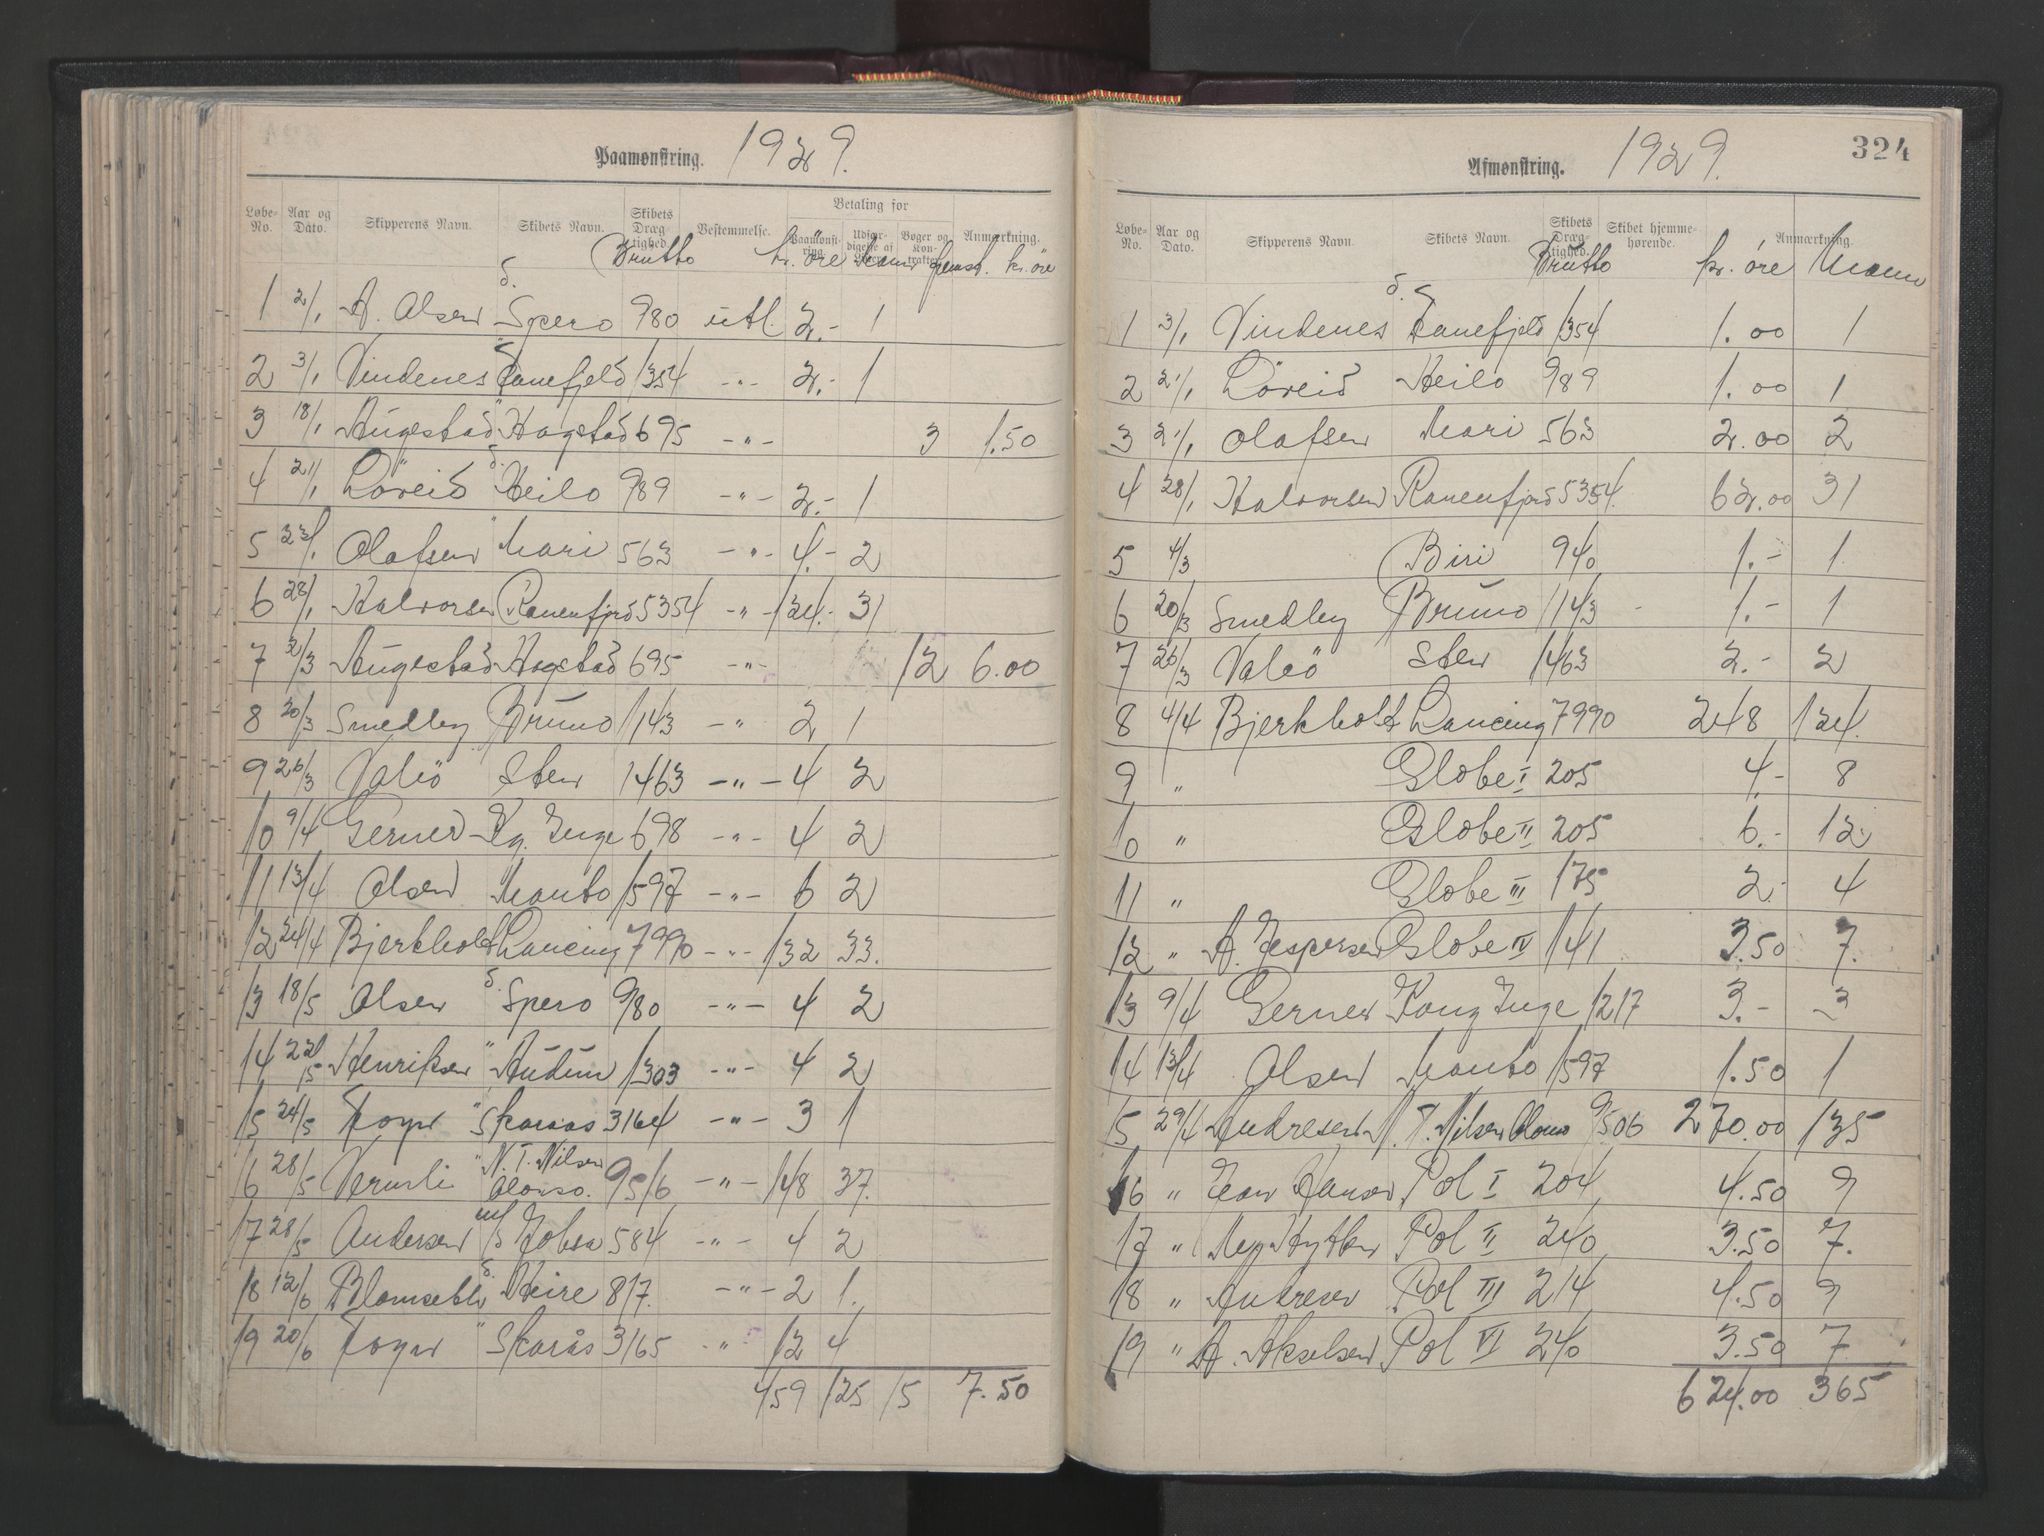 Paamønstring. 1929.
Løbe-No. Aar og Dato. Skipperens Navn. Skibets Navn. Skibets Dræg-tighed. Brutto Bestemmelse. Betaling for Paamønst-ring Udfær-digelse af Bøger og Kon-trakter Anmærkning.
kr. øre Mann kr. øre
1 2/1 A. Olsen S. Spero 980 utl. 2.- 1
2 3/1 Vindenes " Tanefjeld 1354 -"- 2.- 1
3 18/1 Augestad " Hogstad 695 -"- 3 1.50
4 21/1 Løveid S. Heilo 989 -"- 2.- 1
5 23/1 Olafsen " Mari 563 -"- 4.- 2
6 28/1 Halvorsen Ranenfjord 5354 -"- 124.- 31
7 2/3 Augestad Hogstad 695 -"- 12 6.00
8 20/3 Smedley Bruno 1143 -"- 2 1
9 26/3 Valeö Sten 1463 -"- 4 2
10 9/4 Gerner Kg. Inge 698 -"- 4 2
11 13/4 Olsen Manto 1597 -"- 6 2
12 24/4 Bjerkholt Lancing 7990 -"- 132 33.
13 18/5 Olsen S. Spero 980 -"- 4 2
14 22/5 Henriksen " Audun 1303 -"- 4 2
15 24/5 Foyn " Skaraas 3164 -"- 3 1
16 28/5 " N. T. Nilsen Alonso. 9516 -"- 148 37.
17 28/5 Andersen m/S Jobsa 584 -"- 4 2
18 12/6 S. Heire 817. -"- 2 1.
19 20/6 Foyn " Skarås 3165 -"- 12 4
459 125 15 7.50
Afmønstring. 1929. 324
Løbe-No. Aar og Dato. Skipperens Navn. Skibets Navn. Skibets Dræg-tighed. Brutto Skibet hjemme-hørende. Anmærkning.
kr. øre Mann
1 3/1 Vindenes S. Tanefjeld 1354 1.00 1
2 21/1 Løveid Heilo 989 1.00 1
3 21/1 Olafsen Mari 563 2.00 2
4 28/1 Halvorsen Ranenfjord 5354. 62.00 31
5 4/3 Biri 940 1.- 1
6 20/3 Smedley Bruno 1143 - 1.- 1
7 26/3 Valeö Sten 1463 2.- 2
8 4/4 Bjerkholt Lancing 7990 248 124.
9 " Globe I 205 4.- 8
10 " Globe II 205 6.- 12
11 " Globe III 175 2.- 4
12 " A. Jespersen Globe IV 141 3.50 7.
13 9/4 Gerner Kong Inge 1217 3.- 3
14 13/4 Olsen Manto 1597 1.50 1
15 29/4 Andresen N. T. Nilsen Alonso 9506 270.00 135
16 " Hansen Pol I 204 4.50 9
17 " Pol II 240 3.50 7.
18 " Andresen Pol III 214 4.50 9
19 " A. Akselsen Pol VI 240 3.50 7
624.00 365